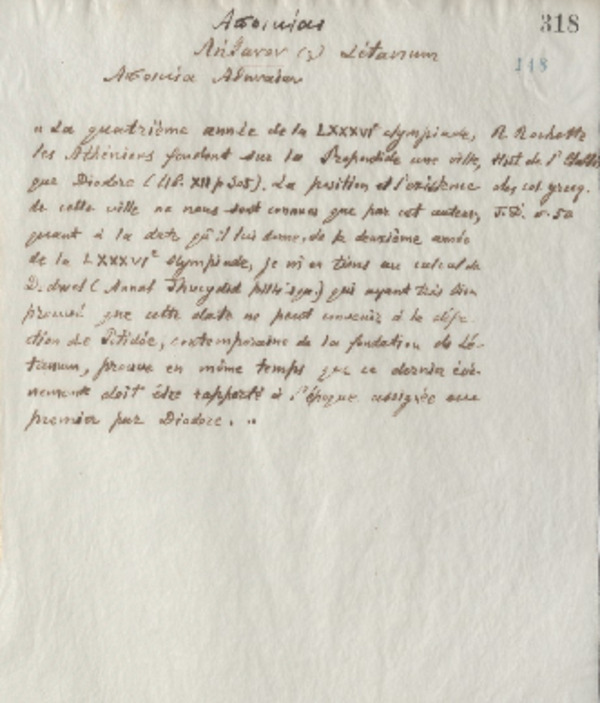 Αποικίαι
318
Λήτανον (ς) Létanum
148
Αποικία Αθηναίων
" La quatrième année de la LXXXVIe olympiade,
les Athéniens fondent sur la Propontide une ville,
que Diodore (lib. XII p 305). La position et l'existence
de cette ville ne nous sont connues que par cet auteur,
quant à la date qu'il lui donne, de la deuxième année
de la LXXXVIe olympiade, je m'en tiens au calcul de
Dodwel (Annal Thucydid) qui ayant très bien
prouvé que cette date ne peut convenir à la défe-
ction de Potidée, contemporaine de la fondation de Lé-
tanum, prouve en même temps que ce dernier évè-
nement doit être rapporté à l'époque assignée au
premier par Diodore. "
R. Rochette
Hist. de l'Etabliss
des col. grecq.